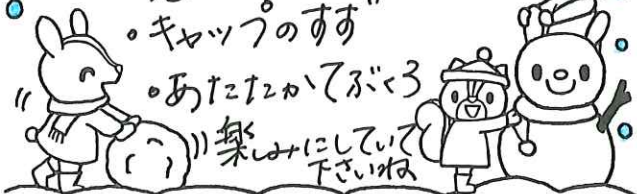 ・キャップのすず
・あたたかてぶくろ
楽しみにしていて
下さいね